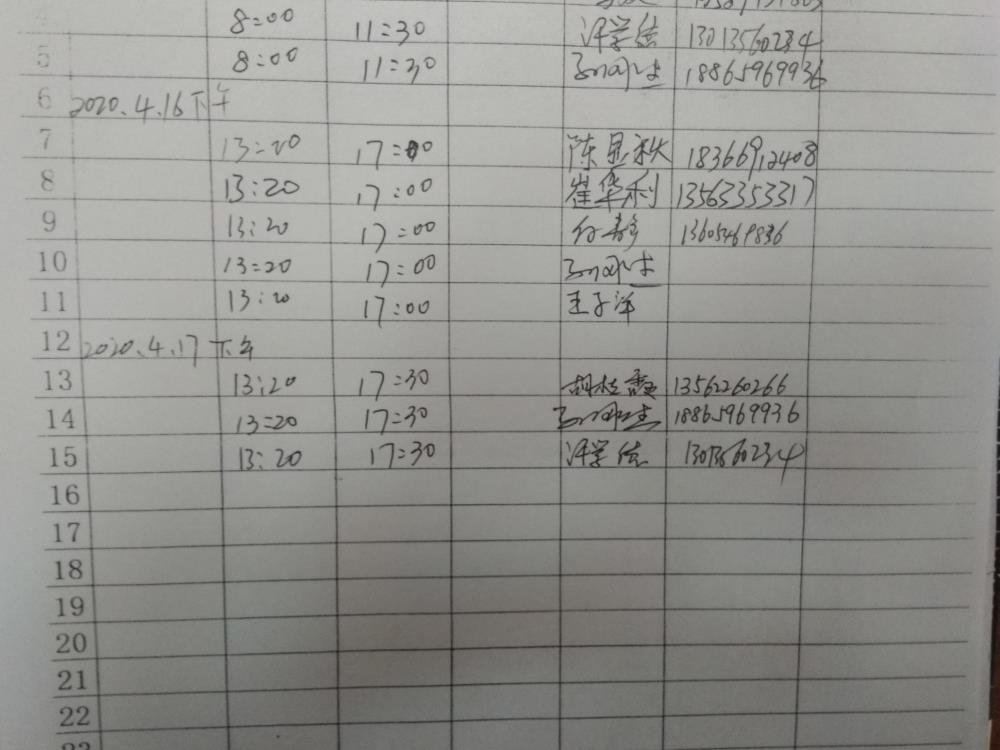 4 8:00 11:30 许学结 13013560234
5 8:00 11:30 18865969936
6 2020.4.16下午
7 13:20 17:00 陈显秋 18366912408
8 13:20 17:00 崔华利 13563353317
9 13:20 17:00 付静 13605469836
10 13:20 17:00
11 13:20 17:00 王子洋
12 2020.4.17下午
13 13:20 17:30 胡桂霞 13562260266
14 13:20 17:30 18865969936
15 13:20 17:30 许学结
16
17
18
19
20
21
22